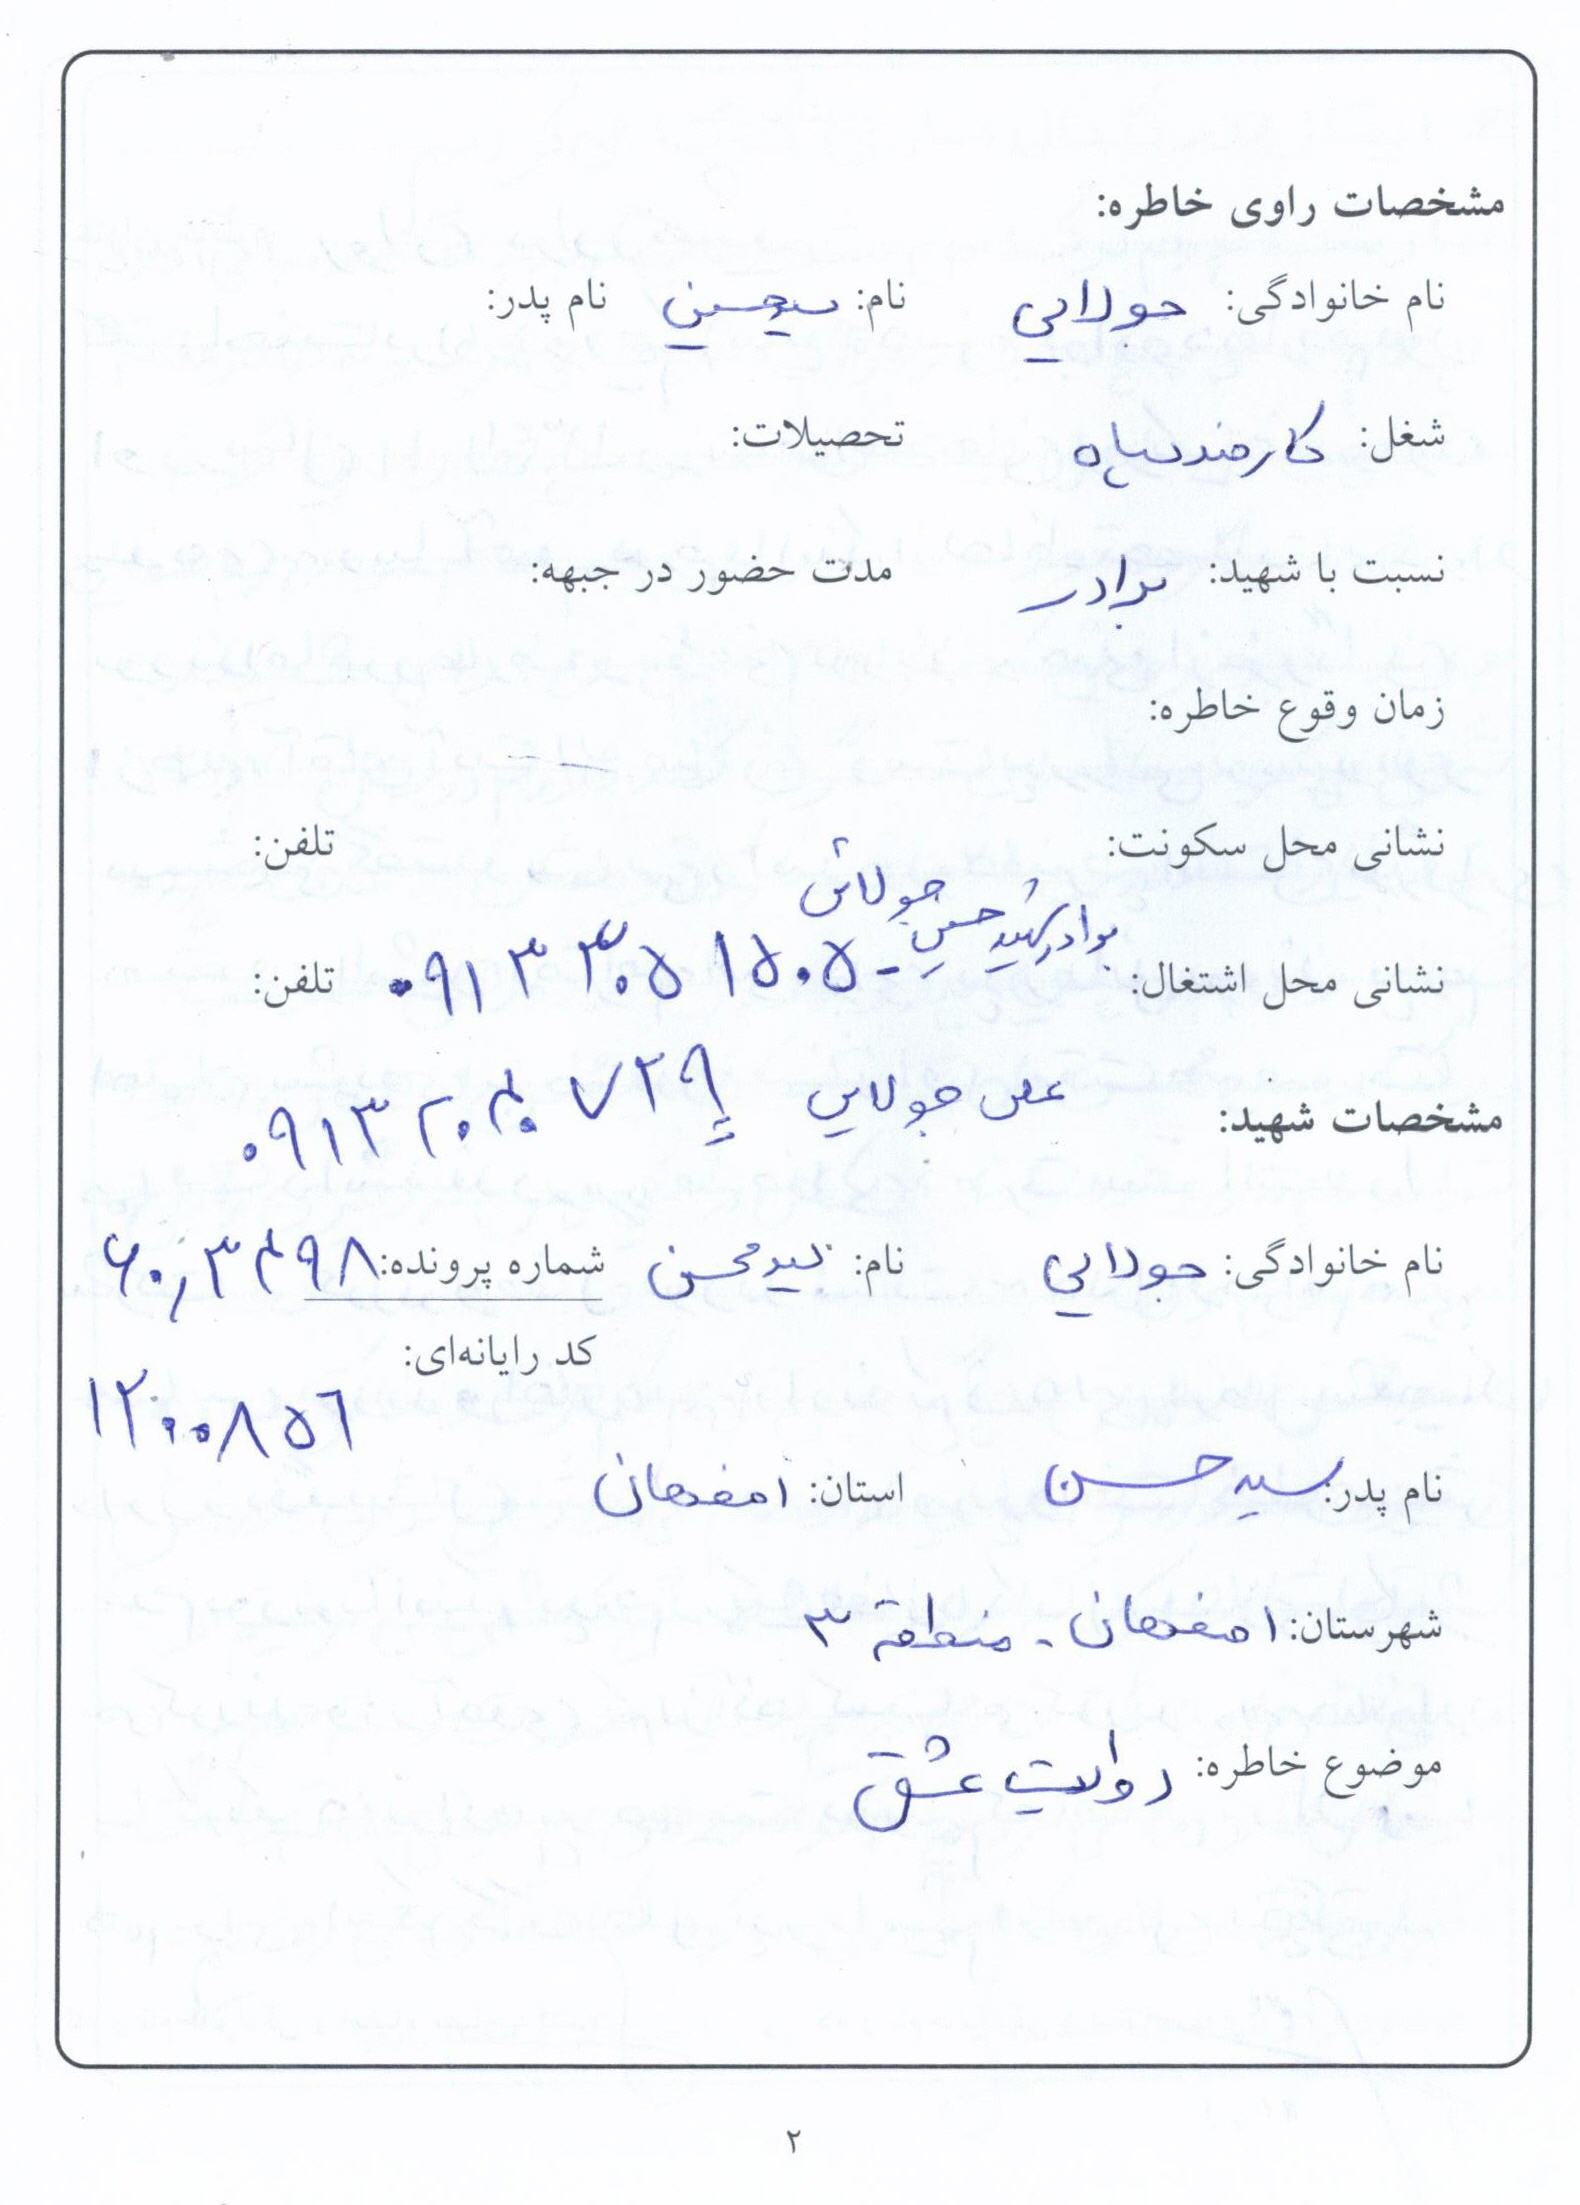 مشخصات راوی خاطره:
نام خانوادگی: جولایی نام: سیدحسین نام پدر:
شغل: کارمند سپاه تحصیلات:
نسبت با شهید: برادر مدت حضور در جبهه:
زمان وقوع خاطره:
نشانی محل سکونت: تلفن:
برادر شهید حسین جولائی
نشانی محل اشتغال: - ۰۹۱۳۳۰۵۱۵۰۵ تلفن:
جولایی ۰۹۱۳۲۰۴۰۷۲۹
مشخصات شهید:
نام خانوادگی: جولایی نام: سیدمحسن شماره پرونده: ۶۰٫۳۴۹۸
کد رایانه‌ای:
۱۲۰۰۸۵۶
نام پدر: سید حسن استان: اصفهان
شهرستان: اصفهان - منطقه ۳
موضوع خاطره: روایت عشق
۲